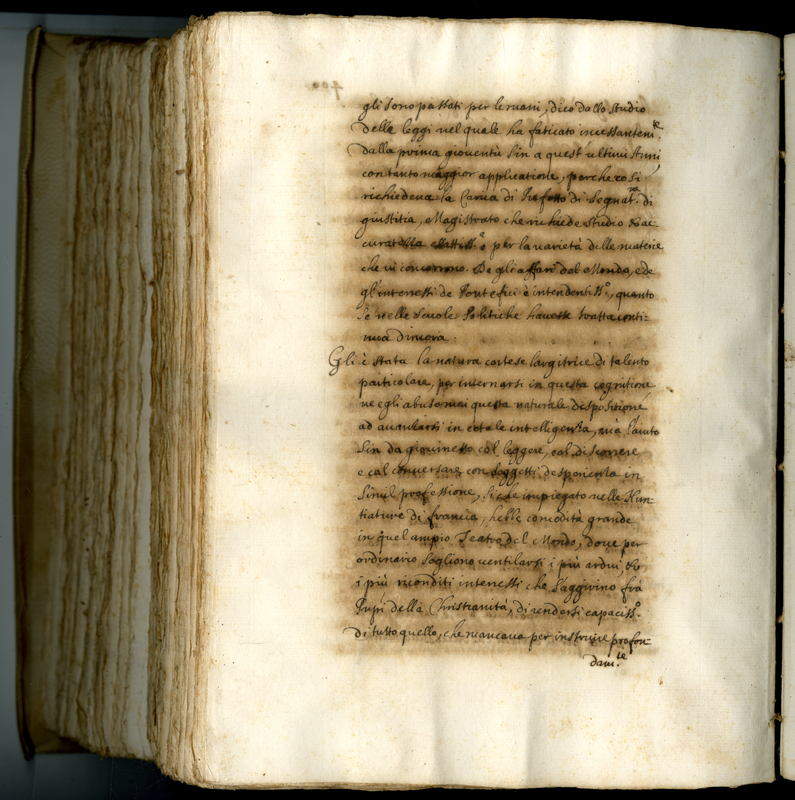 gli sono passati per le mani, dico dallo studio
delle leggi nel quale ha faticato incessantem.te
dalla prima gioventù sin a quest'ultimi Anni,
con tanto maggior applicatione, perche così
richiedeua la Carica di Prefetto di Segnat.ra di
giustitia, Magistrato che richiede studio &
per la varietà delle materie
che vi concorrono. De gli affari del Mondo, e de
gl'interessi de Pontefici è intendentiss.o, quanto
se nelle scuole Politiche hauesse tratta conti=
nua dimora.
Gli è stata la natura cortese largitrice di talento
particolare, per internarsi in questa cognitione
ne egli abusò mai questa naturale dispositione
ad auanzarsi in cotale intelligenza, mà l'aiutò
sin da giouinetto col leggere, col discorrere
e col conuersare con soggetti d'esperienza in
simil professione, si che impiegato nelle Nun=
tiature di francia, hebbe comodità grande
in quel ampio Teatro del Mondo, doue per
ordinario sogliono uentilarsi i più ardui, &
i più reconditi interessi che s'aggirino frà
Prpri della Christianità, di rendersi capaciss.o
di tutto quello, che mancaua per instruire profon=
dam.te